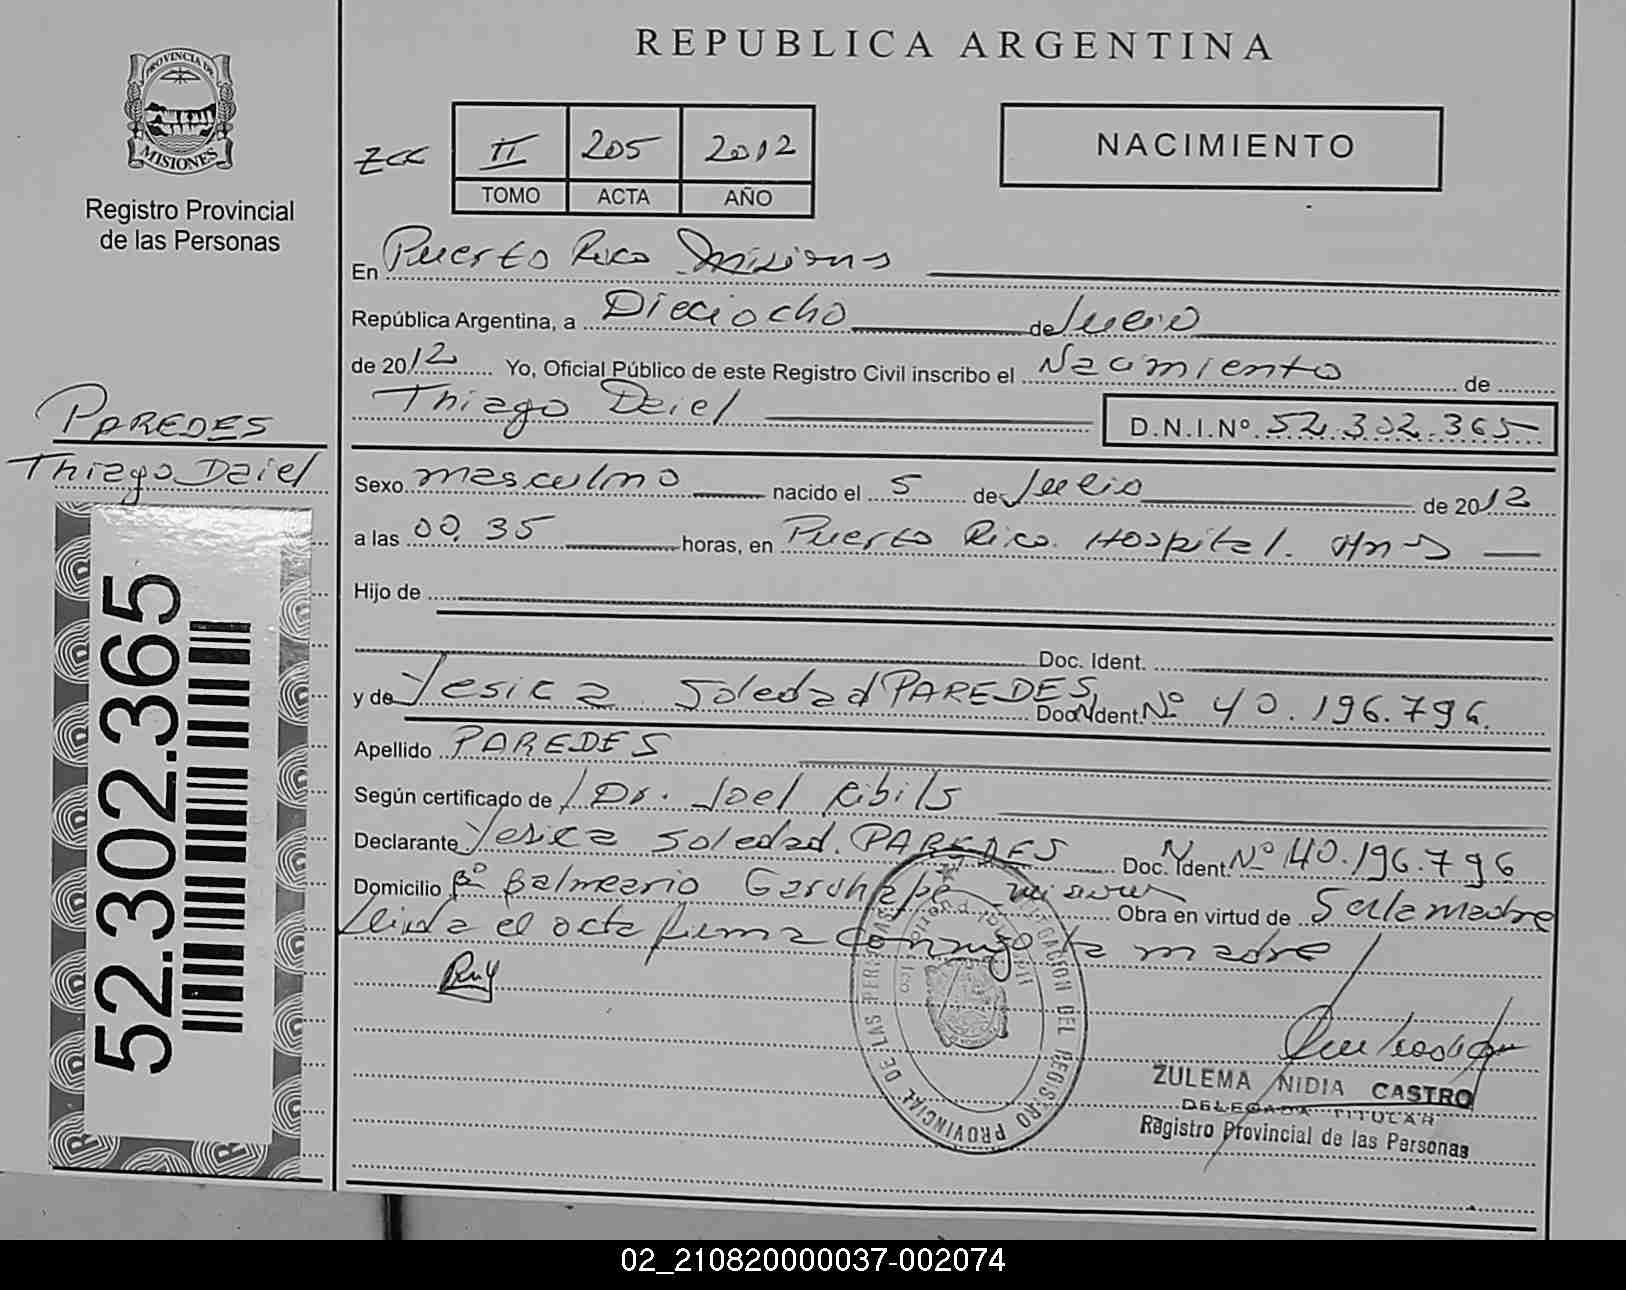 REPUBLICA ARGENTINA
PROVINCIA DE
MISIONES
Registro Provincial
de las Personas
II 205 2012
TOMO ACTA AÑO
NACIMIENTO
En Puerto Rico Misiones
República Argentina, a Dieciocho de Julio
de 2012 Yo, Oficial Público de este Registro Civil inscribo el Nacimiento de
Thiago Daiel D.N.I.Nº 52.302.365
PAREDES
Thiago Daiel
52.302.365
Sexo masculino nacido el 5 de Julio de 2012
a las 00.35 horas, en Puerto Rico. Hospital.
Hijo de
Doc. Ident.
y de Yesica Soledad PAREDES Doc. Ident. Nº 40.196.796.
Apellido PAREDES
Según certificado de Dr. Joel Ribils
Declarante Yesica Soledad. PAREDES Doc. Ident. Nº 40.196.796
Domicilio Bº Balneario Garuhapé Misiones Obra en virtud de Ser la madre
Leida el acta firma conmigo la madre
DELEGACION DEL REGISTRO PROVINCIAL DE LAS PERSONAS
ZULEMA NIDIA CASTRO
DELEGADA TITULAR
Registro Provincial de las Personas
02_210820000037-002074